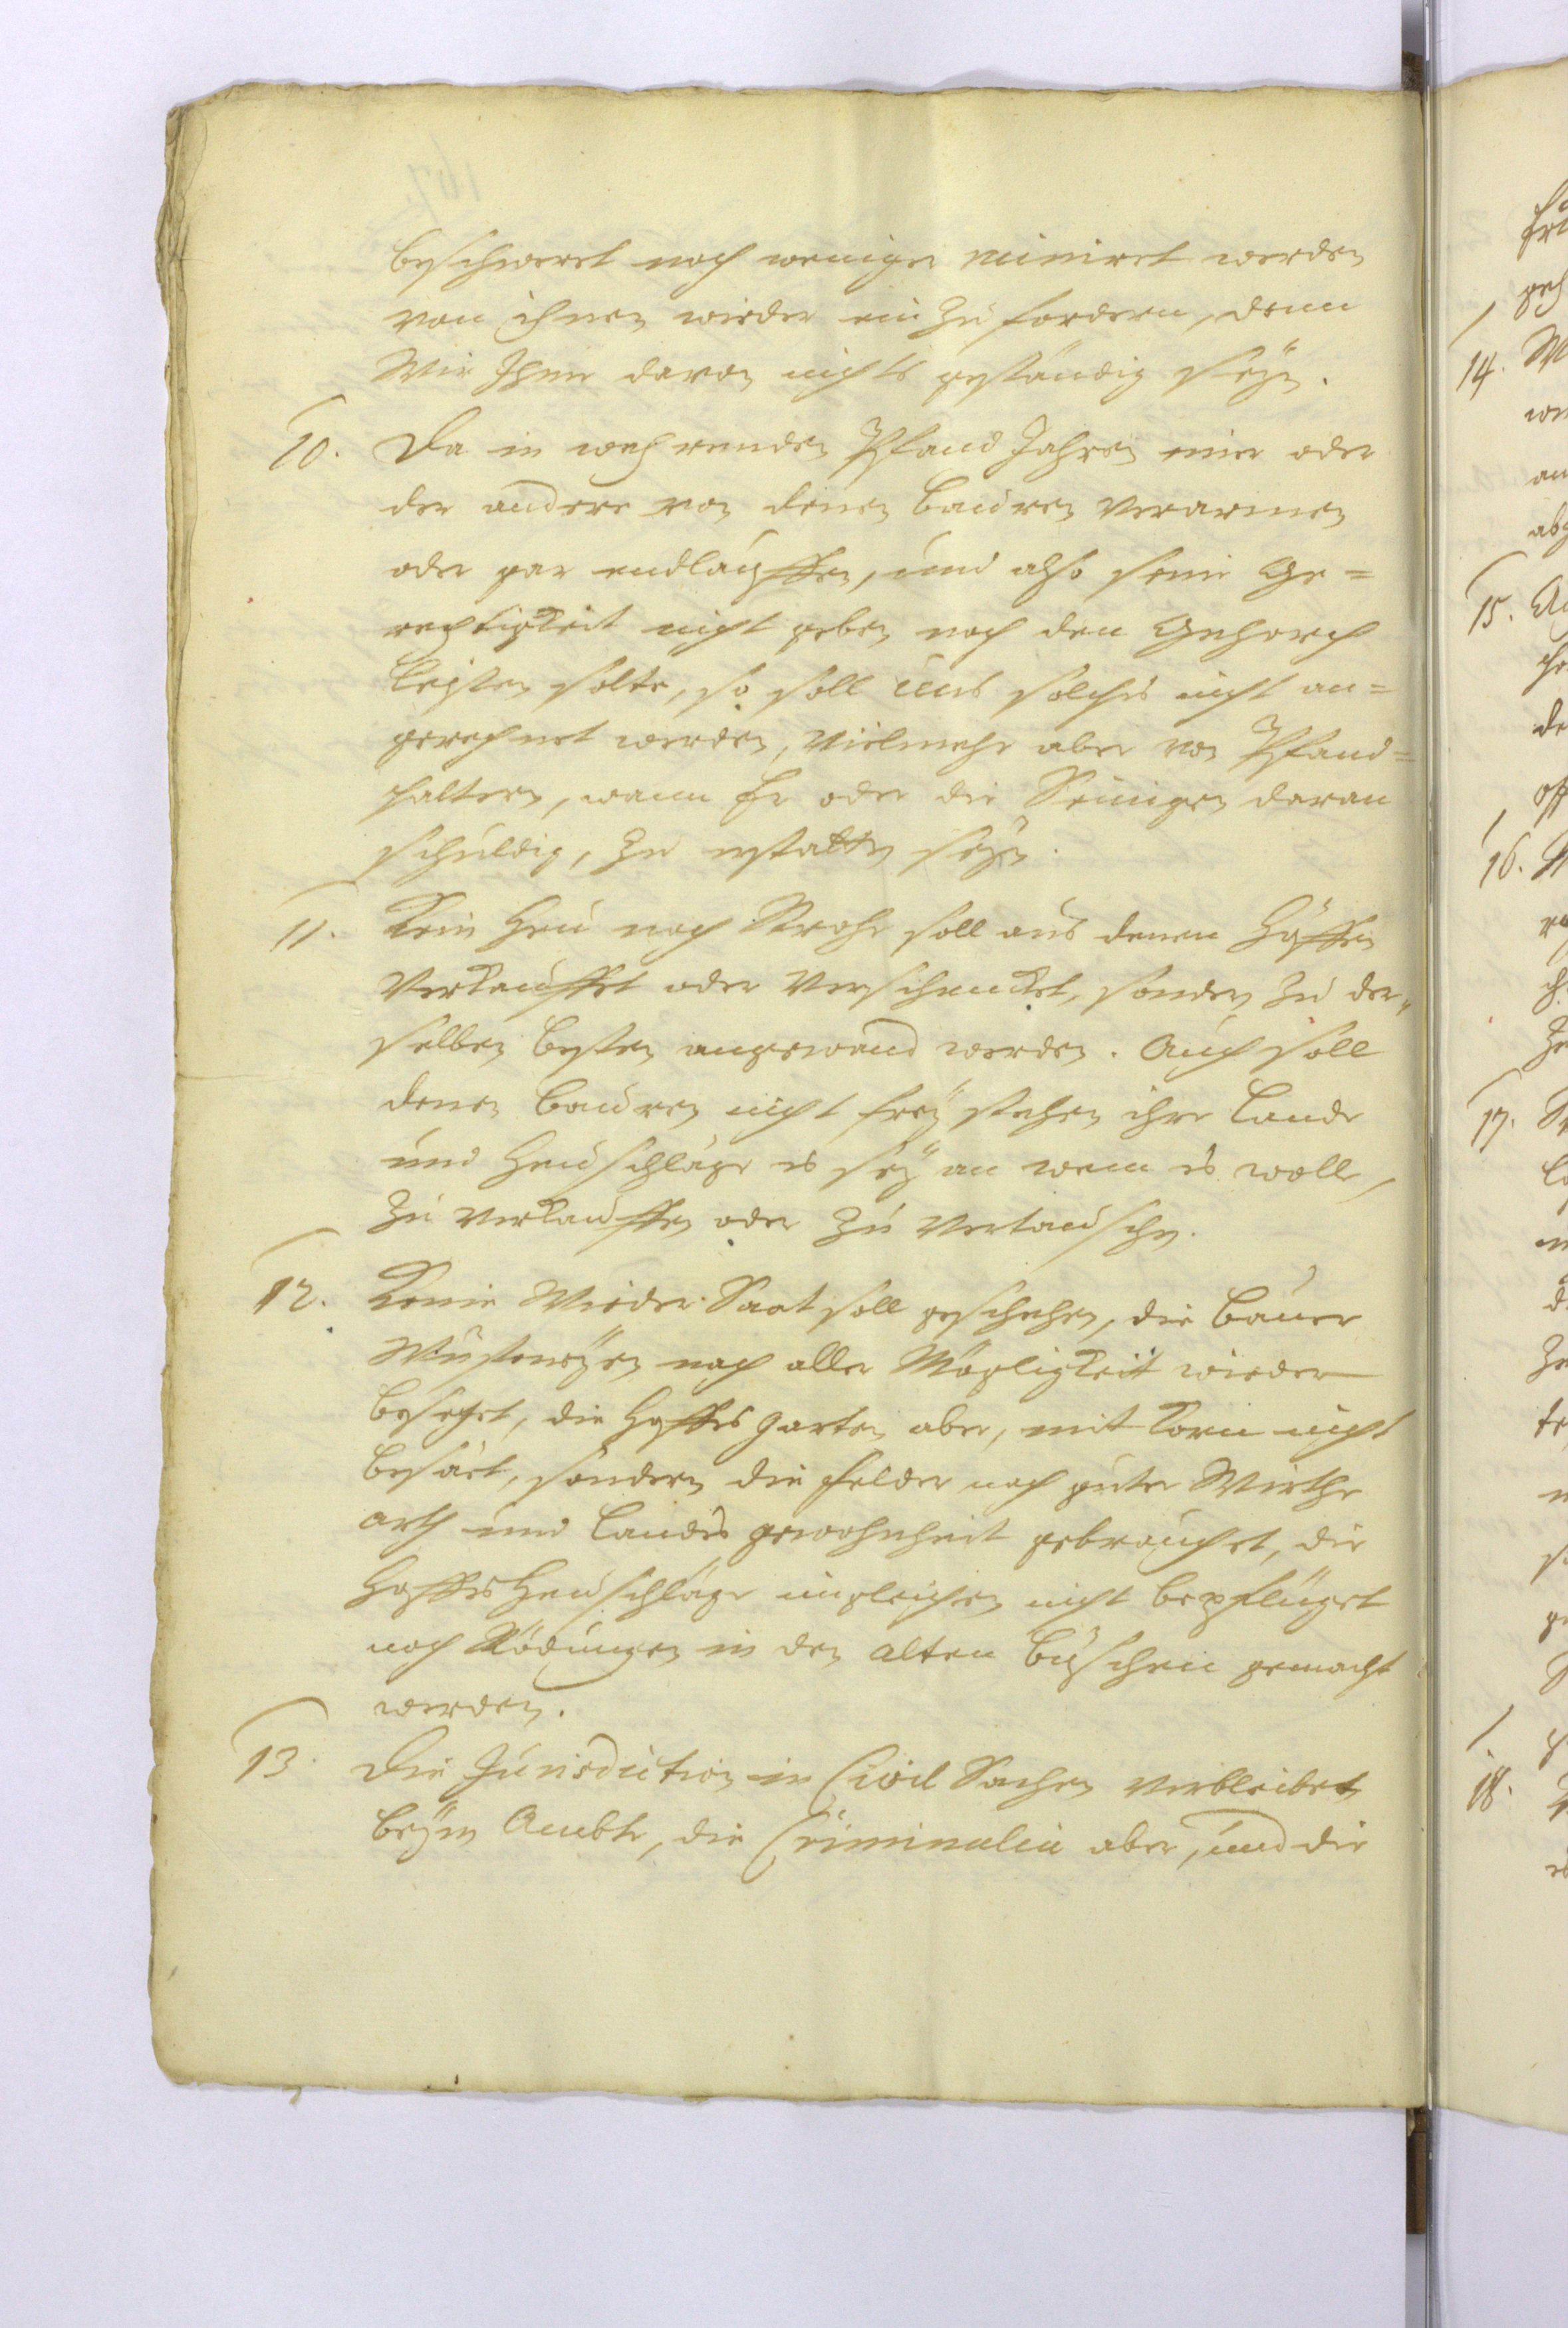 beschweret noch weniger ruiniret werden
von ihnen wieder ein zu fordern, denn
Wir Ihm davon nichts geständig seÿn.
10. Da in wehrenden Pfand Jahren einer oder
der andere von denen Bauren verarmen
oder gar endlauffen, und also seine Ge=
rechtigkeit nicht geben noch den Gehorch
leisten solte, so soll uns solches nicht an=
gerechnet werden, Vielmehr aber von Pfand=
haltern, wann Er oder die Seinigen daran
schuldig, zu erstatten seÿn.
11. Kein Heu noch Strohe soll aus denen Höffen
Verkauffet oder Verschencket, sonden zu der„
selben besten angewand werden. Auch soll
denen Bauren nicht freÿ stehen ihre Lande
und Heuschläge es seÿ an wem es wolle,
zu verkauffen oder zu vertauschen.
12. Keine Wieder Saat soll geschehen, die Bauer
Wüsteneÿen nach aller Mögligkeit wieder
besetzet, die Hoffes garten aber, mit Korn nicht
besäet, sondern die Felder nach guter Wirthe
arth und Landes gewohnheit gebrauchet, die
Hoffes Heuschläge ingleichen nicht bepflüget
noch Rödungen in den alten Büschen gemacht
werden.
13. Die Jurisdiction in Civil Sachen verbleibet
beÿm Ambte, die Criminalia aber, und die
14.
15.
16.
17.
18.